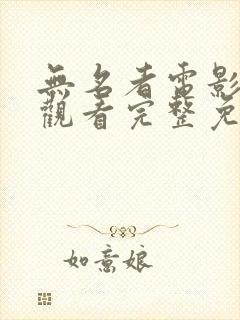 無名者電影
觀看完整免
如意娘